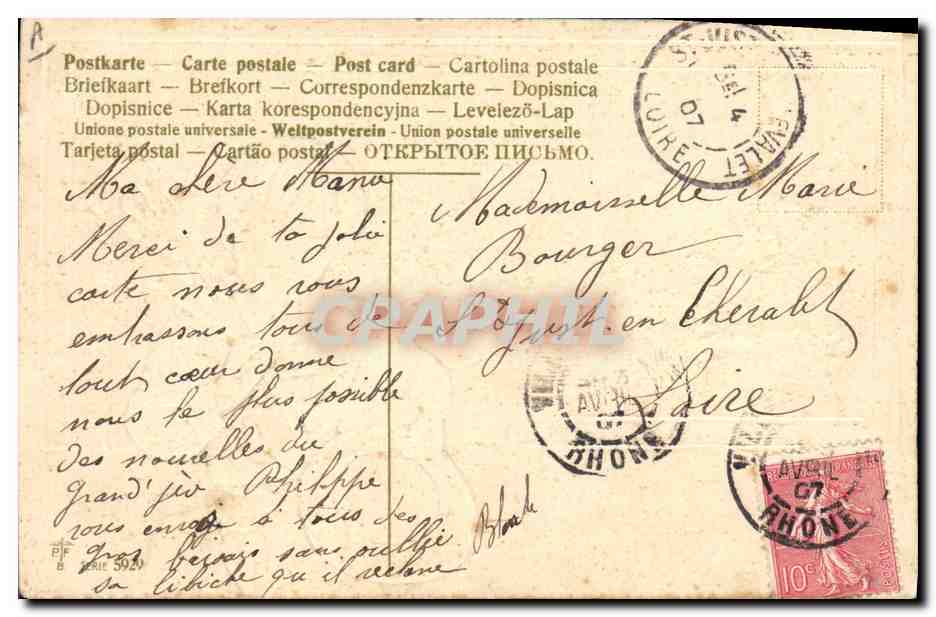 A
Postkarte – Carte postale – Post card – Cartolina postale
Briefkaart – Brefkort – Correspondenzkarte – Dopisnica
Dopisnice – Karta korespondencyjna – Levelező-Lap
Unione postale universale - Weltpostverein - Union postale universelle
Tarjeta postal – Cartão postal – ОТКРЫТОЕ ПИСЬМО.
Merci de ta jolie
carte nous vous
embrassons tous de
tout cœur donne
nous le plus possible
des nouvelles du
grand' Philippe
vous à tous des
gros sans
sa qu'il
PF
B SERIE 5929
Mademoiselle Marie
Bourger
St Just en Chevalet
Loire
CPAPHIL
4
07
EVALET
LOIRE
AVRIL
07
RHONE
AVRIL
07
RHONE
10c
POSTES